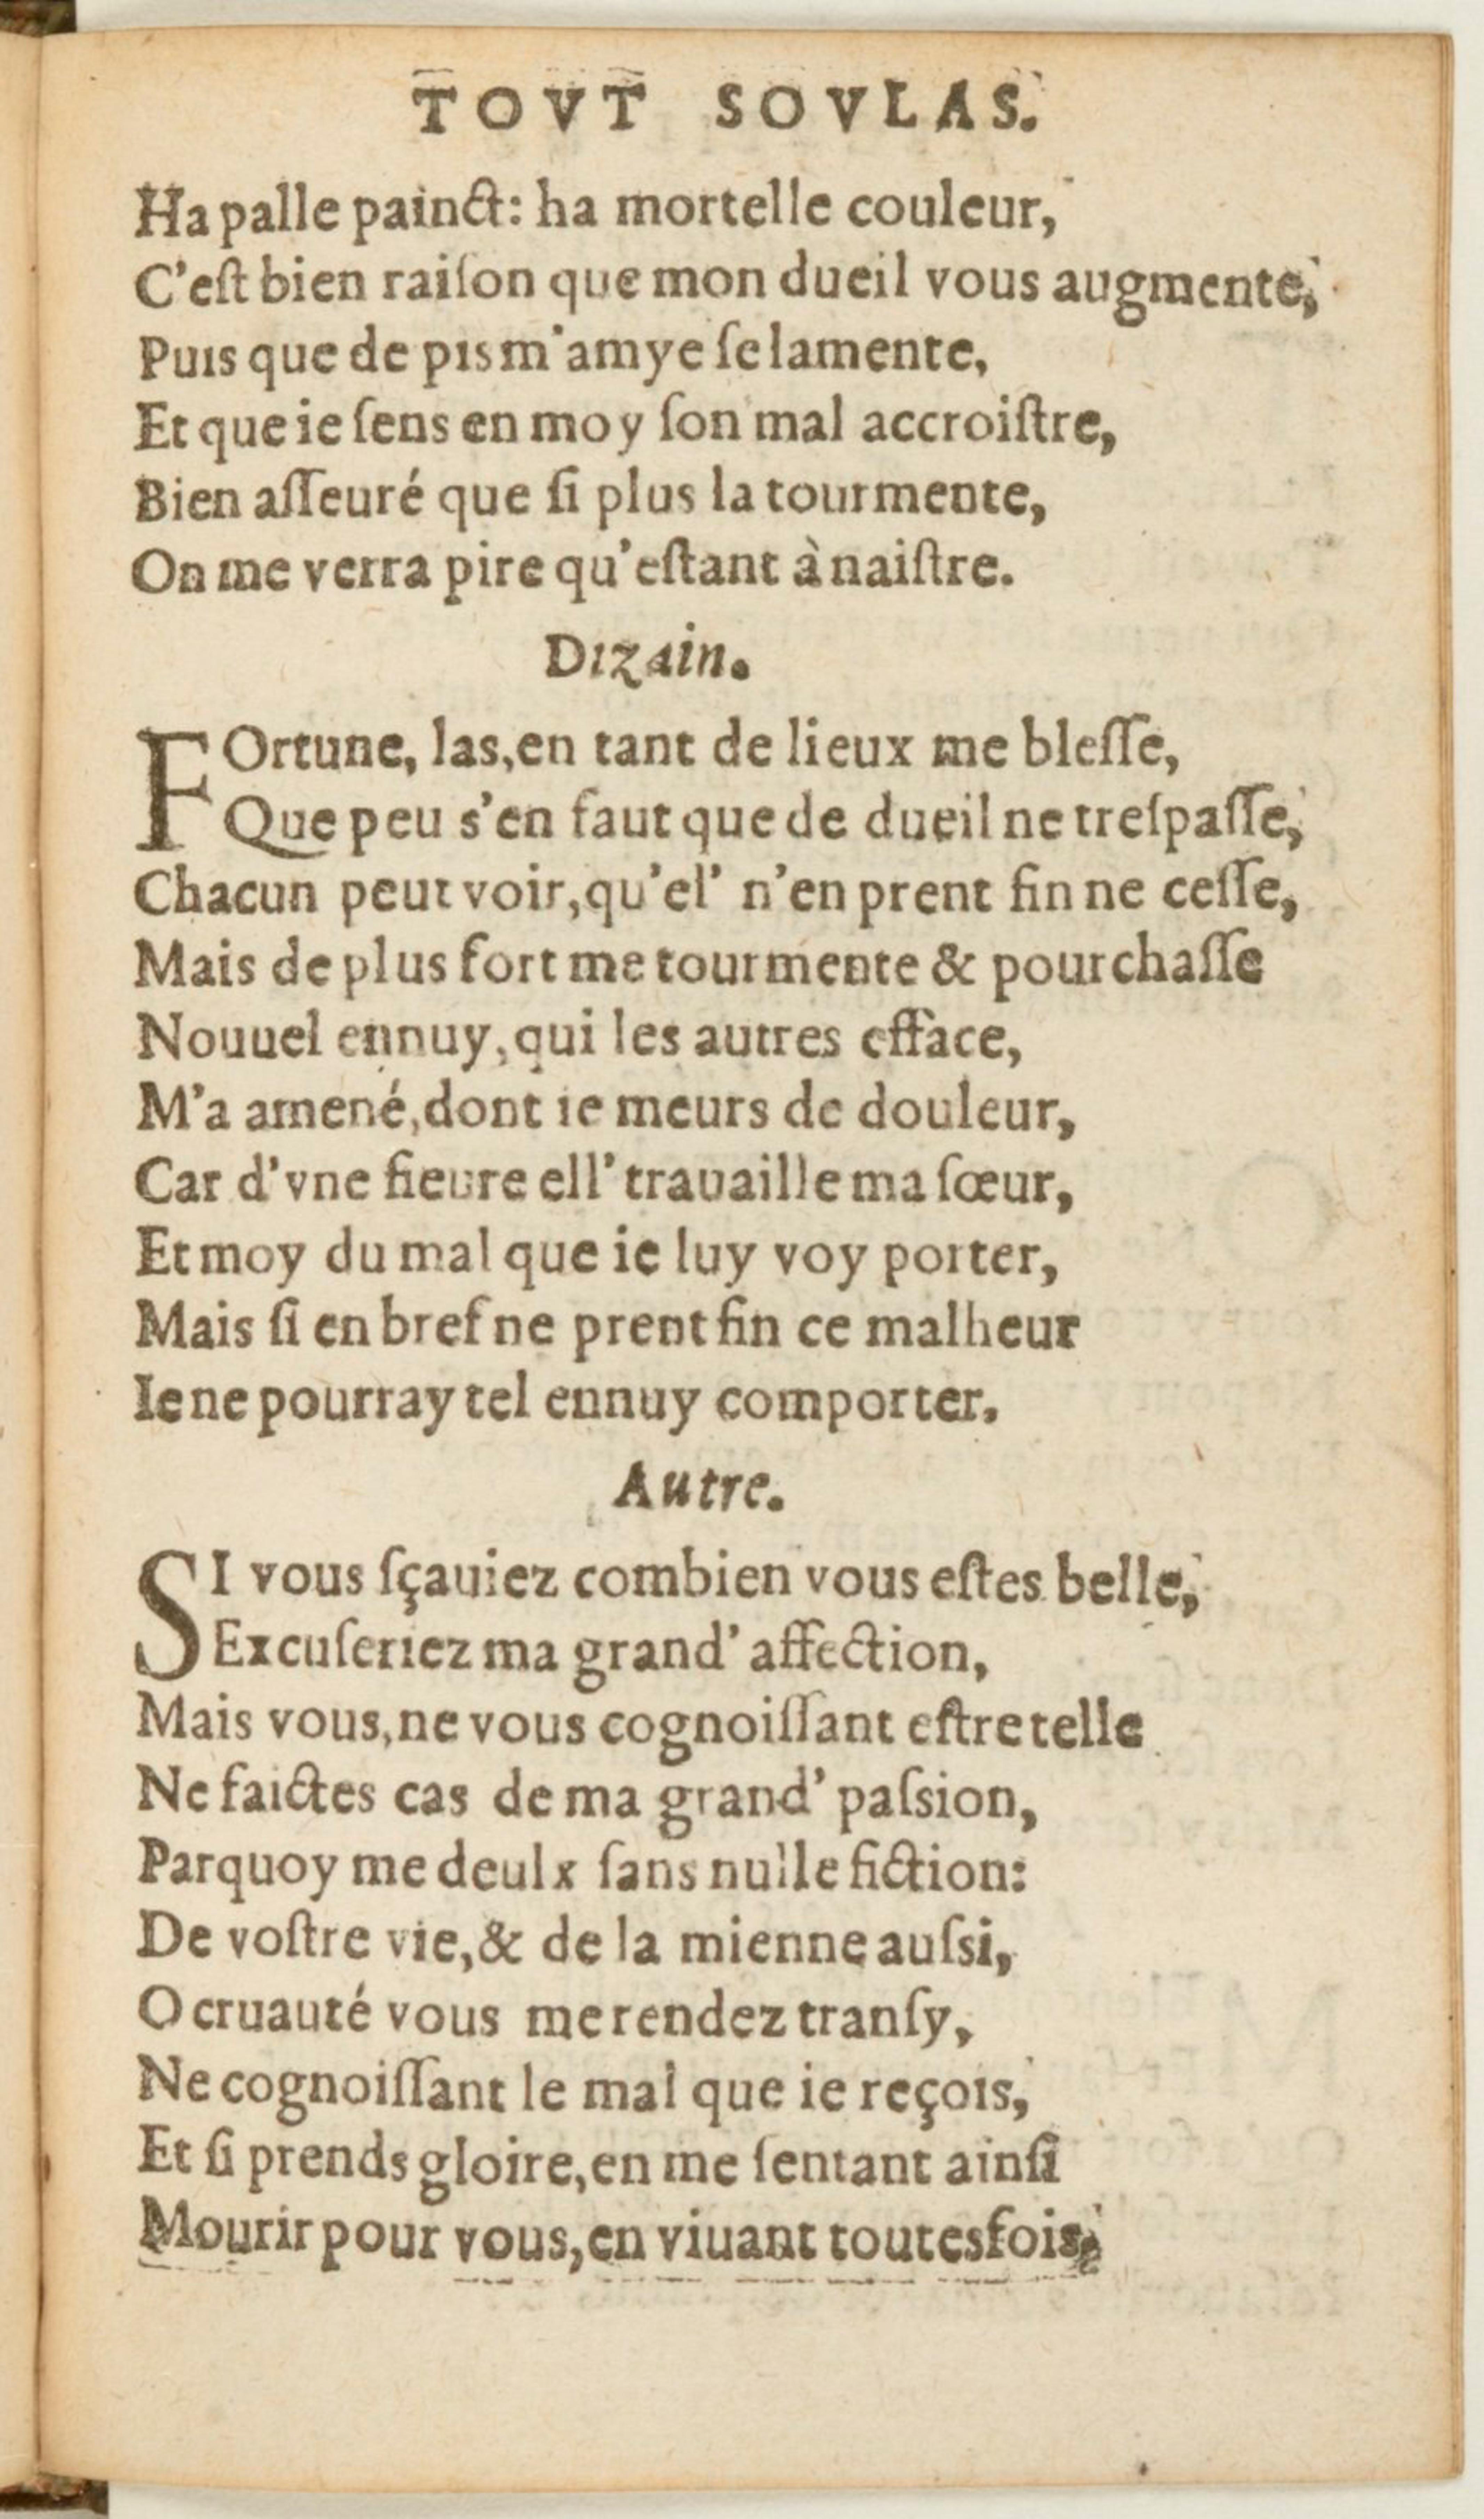 TOVT SOVLAS.
Ha palle painct: ha mortelle couleur,
C'eſt bien raiſon que mon dueil vous augmente,
Puis que de pis m'amye ſe lamente,
Et que ie ſens en moy ſon mal accroiſtre,
Bien aſſeuré que ſi plus la tourmente,
On me verra pire qu'eſtant à naiſtre.
Dizain.
FOrtune, las, en tant de lieux me bleſſe,
Que peu s'en faut que de dueil ne treſpaſſe,
Chacun peut voir, qu'el' n'en prent fin ne ceſſe,
Mais de plus fort me tourmente & pourchaſſe
Nouuel ennuy, qui les autres efface,
M'a amené, dont ie meurs de douleur,
Car d'vne fieure ell' trauaille ma ſœur,
Et moy du mal que ie luy voy porter,
Mais ſi en bref ne prent fin ce malheur
Ie ne pourray tel ennuy comporter.
Autre.
SI vous ſçauiez combien vous eſtes belle,
Excuſeriez ma grand' affection,
Mais vous, ne vous cognoiſſant eſtre telle
Ne faictes cas de ma grand' paſsion,
Parquoy me deulx ſans nulle fiction:
De voſtre vie, & de la mienne auſsi,
O cruauté vous me rendez tranſy,
Ne cognoiſſant le mal que ie reçois,
Et ſi prends gloire, en me ſentant ainſi
Mourir pour vous, en viuant toutesfois.